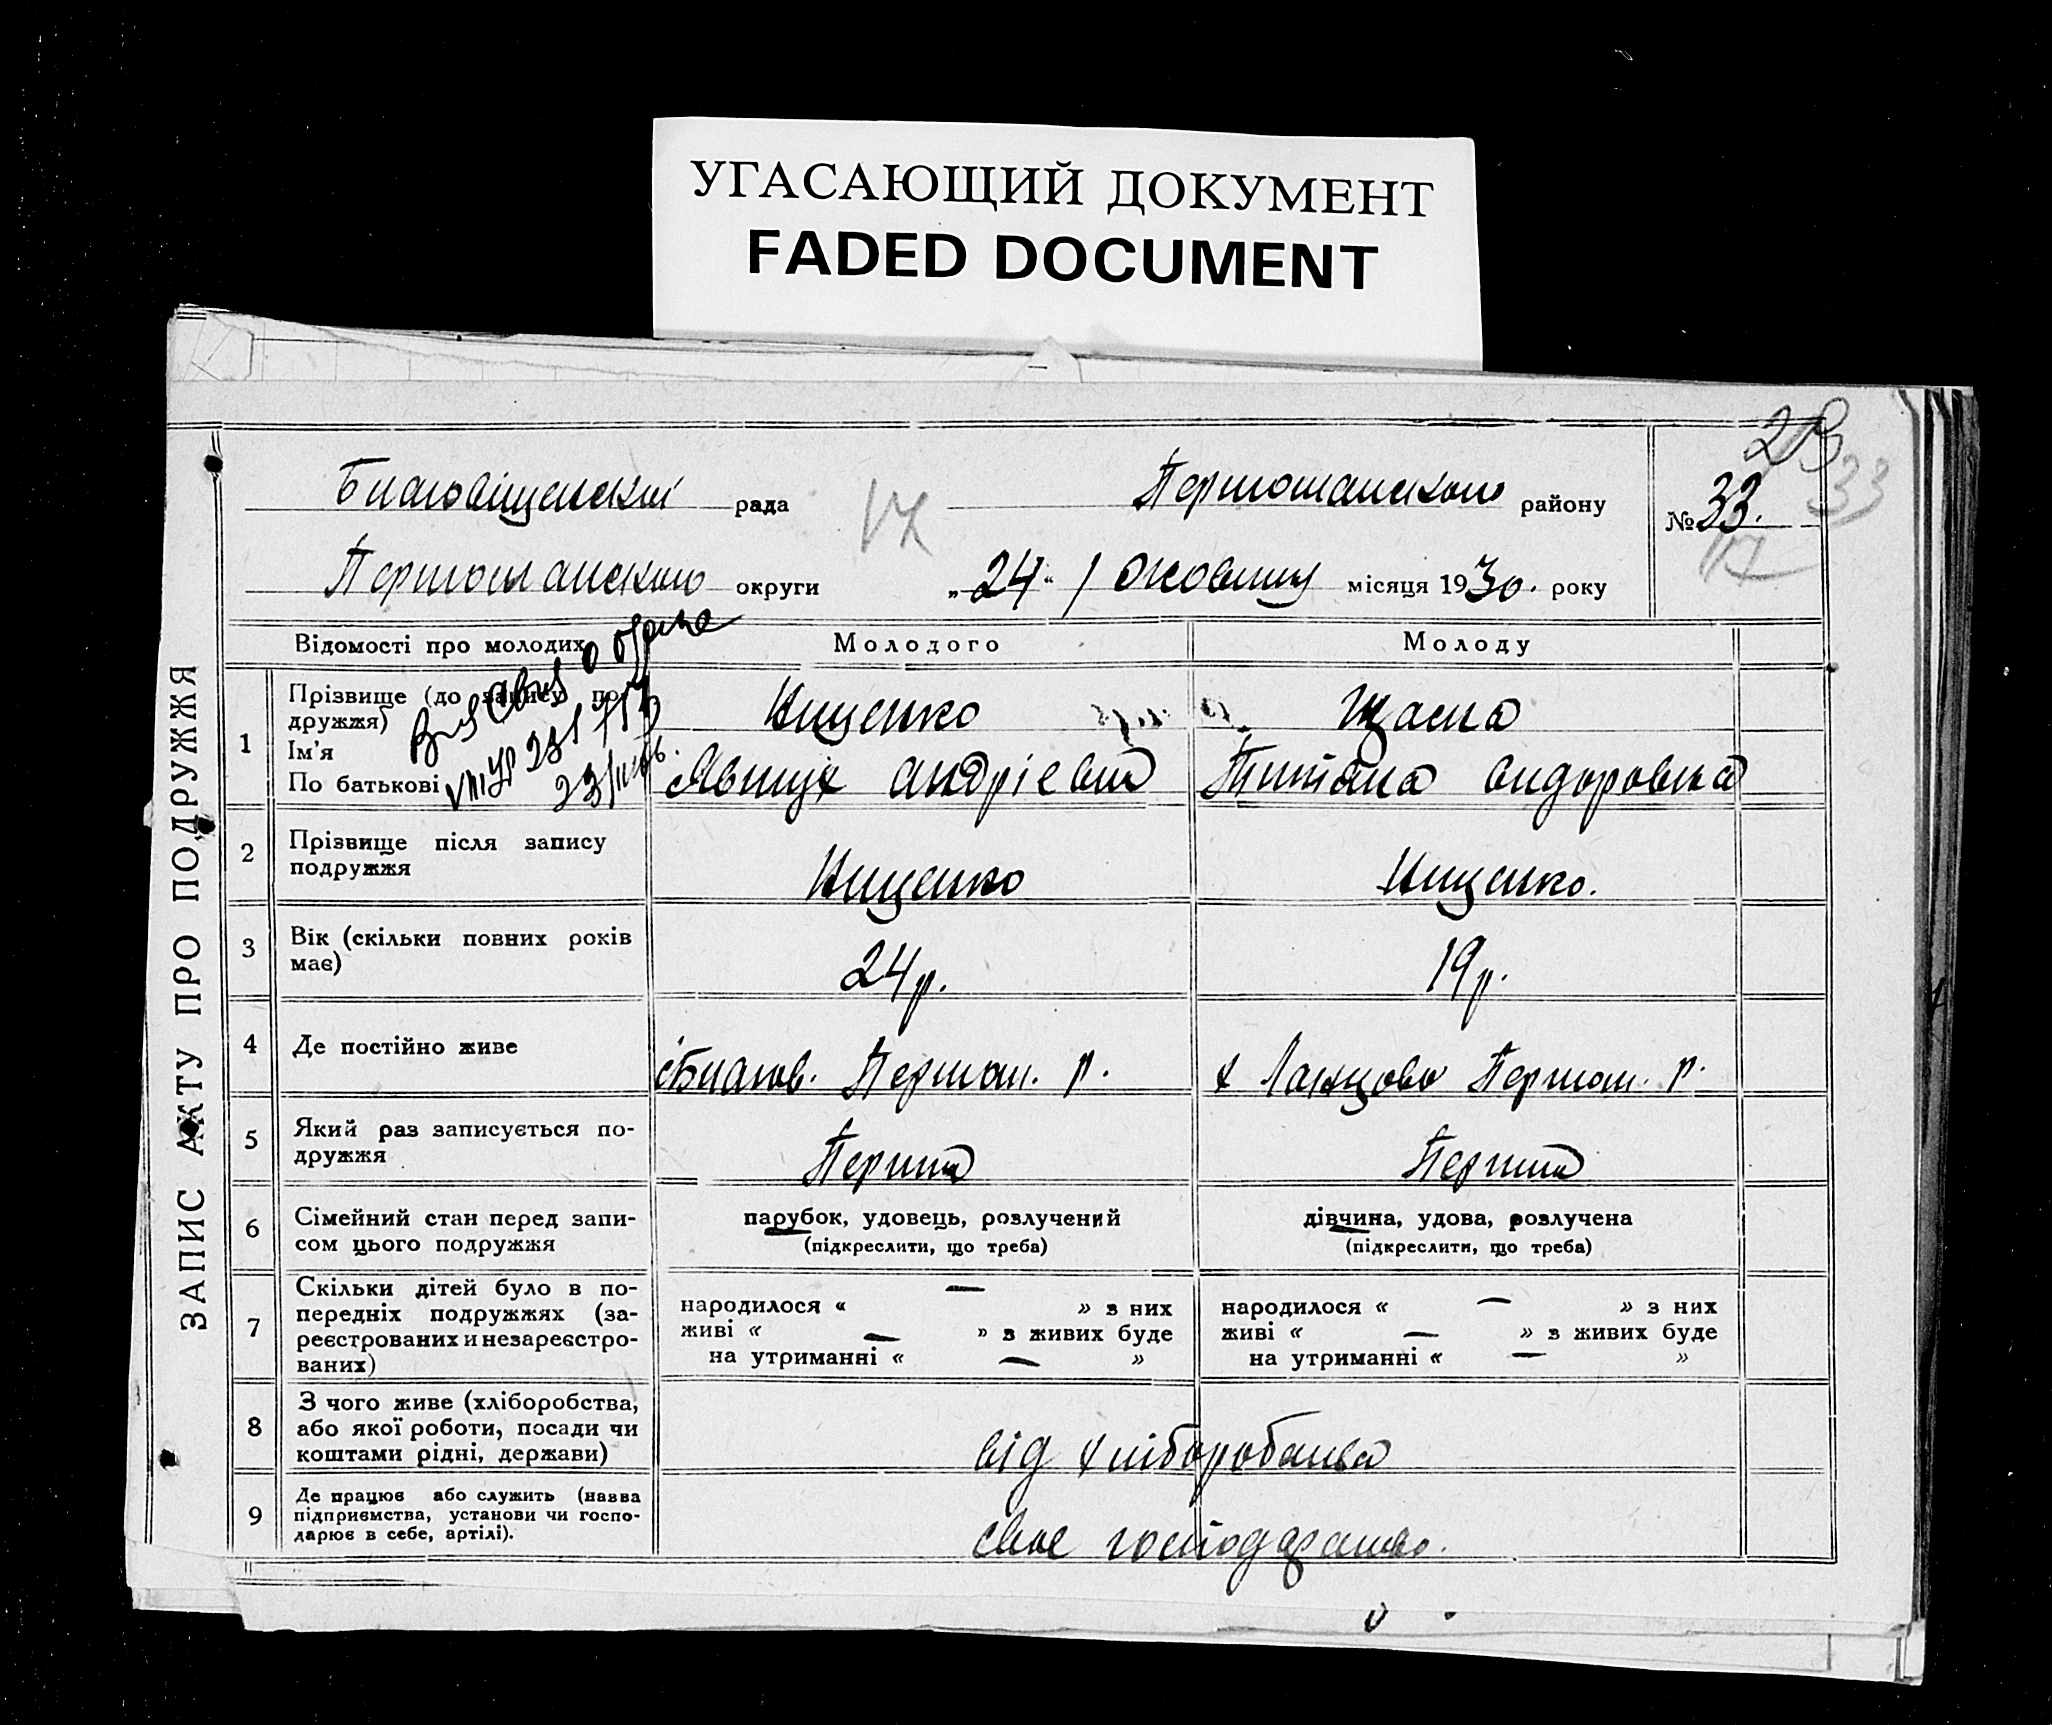 УГАСАЮЩИЙ ДОКУМЕНТ
FADED DOCUMENT
29
33
Благовіщенської рада
17
Першомайського району
№ 33.
17
Першомайського округи
„ 24 “ / Жовтня місяця 1930. року
ЗАПИС АКТУ ПРО ПОДРУЖЖЯ
Відомості про молодих
Молодого
Молоду
1
Прізвище (до запису по-
дружжя)
Ім'я
По батькові
Нищенко
андрієвич
Титяна
2
Прізвище після запису
подружжя
Нищенко
Нищенко.
3
Вік (скільки повних років
має)
24 р.
19 р.
4
Де постійно живе
с Благов. Першом. р.
х Першом. р.
5
Який раз записується по-
дружжя
Перший
Перший
6
Сімейний стан перед запи-
сом цього подружжя
парубок, удовець, розлучений
(підкреслити, що треба)
дівчина, удова, розлучена
(підкреслити, що треба)
7
Скільки дітей було в по-
передніх подружжях (за-
реєстрованих и незареєстро-
ваних)
народилося « — » з них
живі « — » з живих буде
на утриманні « — »
народилося « — » з них
живі « — » з живих буде
на утриманні « — »
8
З чого живе (хліборобства,
або якої роботи, посади чи
коштами рідні, держави)
від хліборобства
9
Де працює або служить (назва
підприємства, установи чи госпо-
дарює в себе, артілі).
своє господарство.